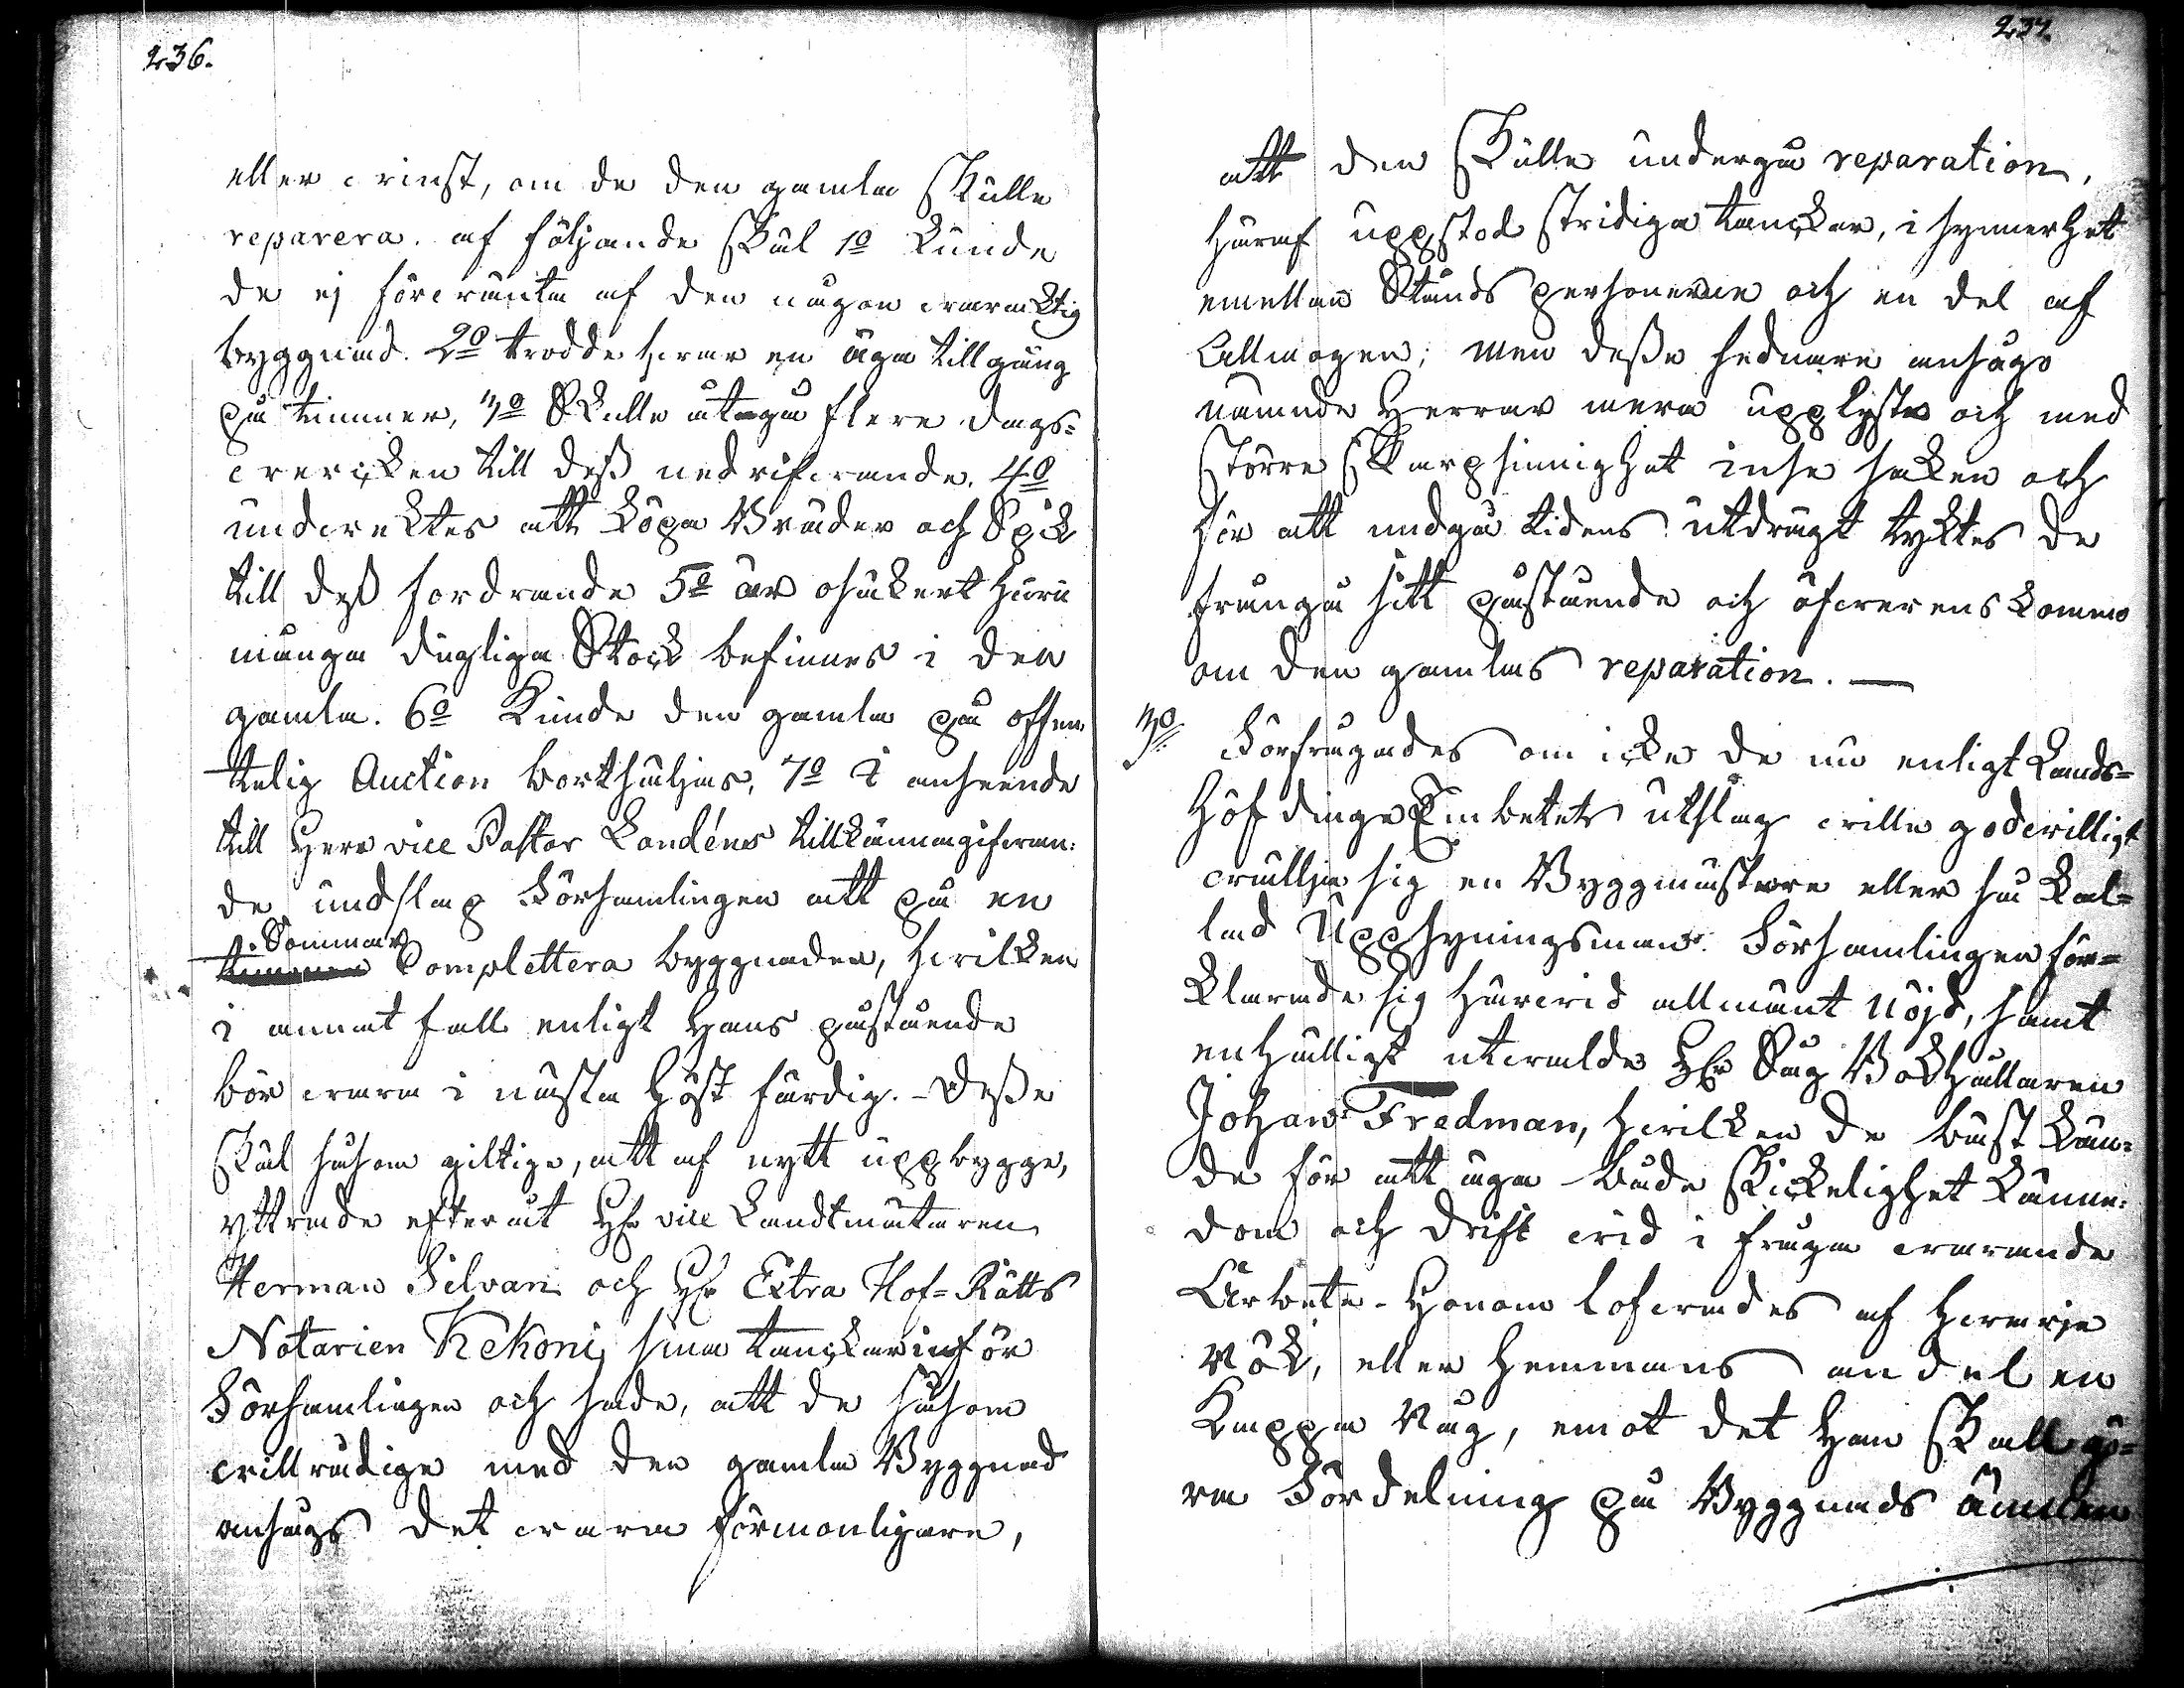 236.
eller winst, om de den gamla skulle
reparera. af följande skäl 1o kunde
de ej förwänta af den någon waracktig
byggnad. 2o trodde hwar en äga tillgång
på timmer, 3o Skulle åtgå flere dags=
wercken till dess nedrifwande. 4o
undwektes att köpa Bräder och Spik
till dess fordrande 5o är osäkert huru
många dugliga Stock befinnes i den
gamla. 6o Kunde den gamla på offen
telig Auction borthsäljas, 7o I anseende
till Herr vice Pastor Landéns tillkännagifwan=
de undslap Församlingen att på en
Sommar
Complettera byggnaden, hwilken
i annat fall enligt Hans påstående
bör wara i nästa höst färdig. - Desse
skäl såsom giltige, att af nytt uppbygge,
yttrade efteråt Hr vice Landtmätaren
Herman Silvan och Hr Extra Hof=Rätts
Notarien Kekoni sina tanckar inför
Församlingen och sade, att de såsom
willrådige med den gamla Byggnad
ansågs det wara förmonligare,
237.
att den skulle undergå reparation,
häraf uppstod stridiga tanckar, i synnerhet
emellan Stånds personerne och en del af
Allmogen; Men desse sednare ansågo
nämnde Herrar mera upplyste och med
större skarpsinnighet inse saken och
för att undgå tidens utdrägt tyktes de
frångå sitt påstående och öfwerenskommo
om den gamlas reparation. —
3o Förfrågades om icke de nu enligt Lands=
höfdinge Embetets utslag wille godwilligt
wällja sig en Byggmästare eller så kal=
lad Uppsyningsman. Församlingen för=
klarade sig härwid allmänt nöjd, samt
enhälligt utwalde Hr Såg Bokhållaren
Johan Fredman, hwilken de bäst kän=
de för att äga både skickelighet känne=
dom och drift wid i fråga warande
Arbete - Honom lofwades af hwarje
Rök, eller Hemmans andel en
Kappa Råg, emot det han skall gö=
ra Fördelning på Byggnads ämnen